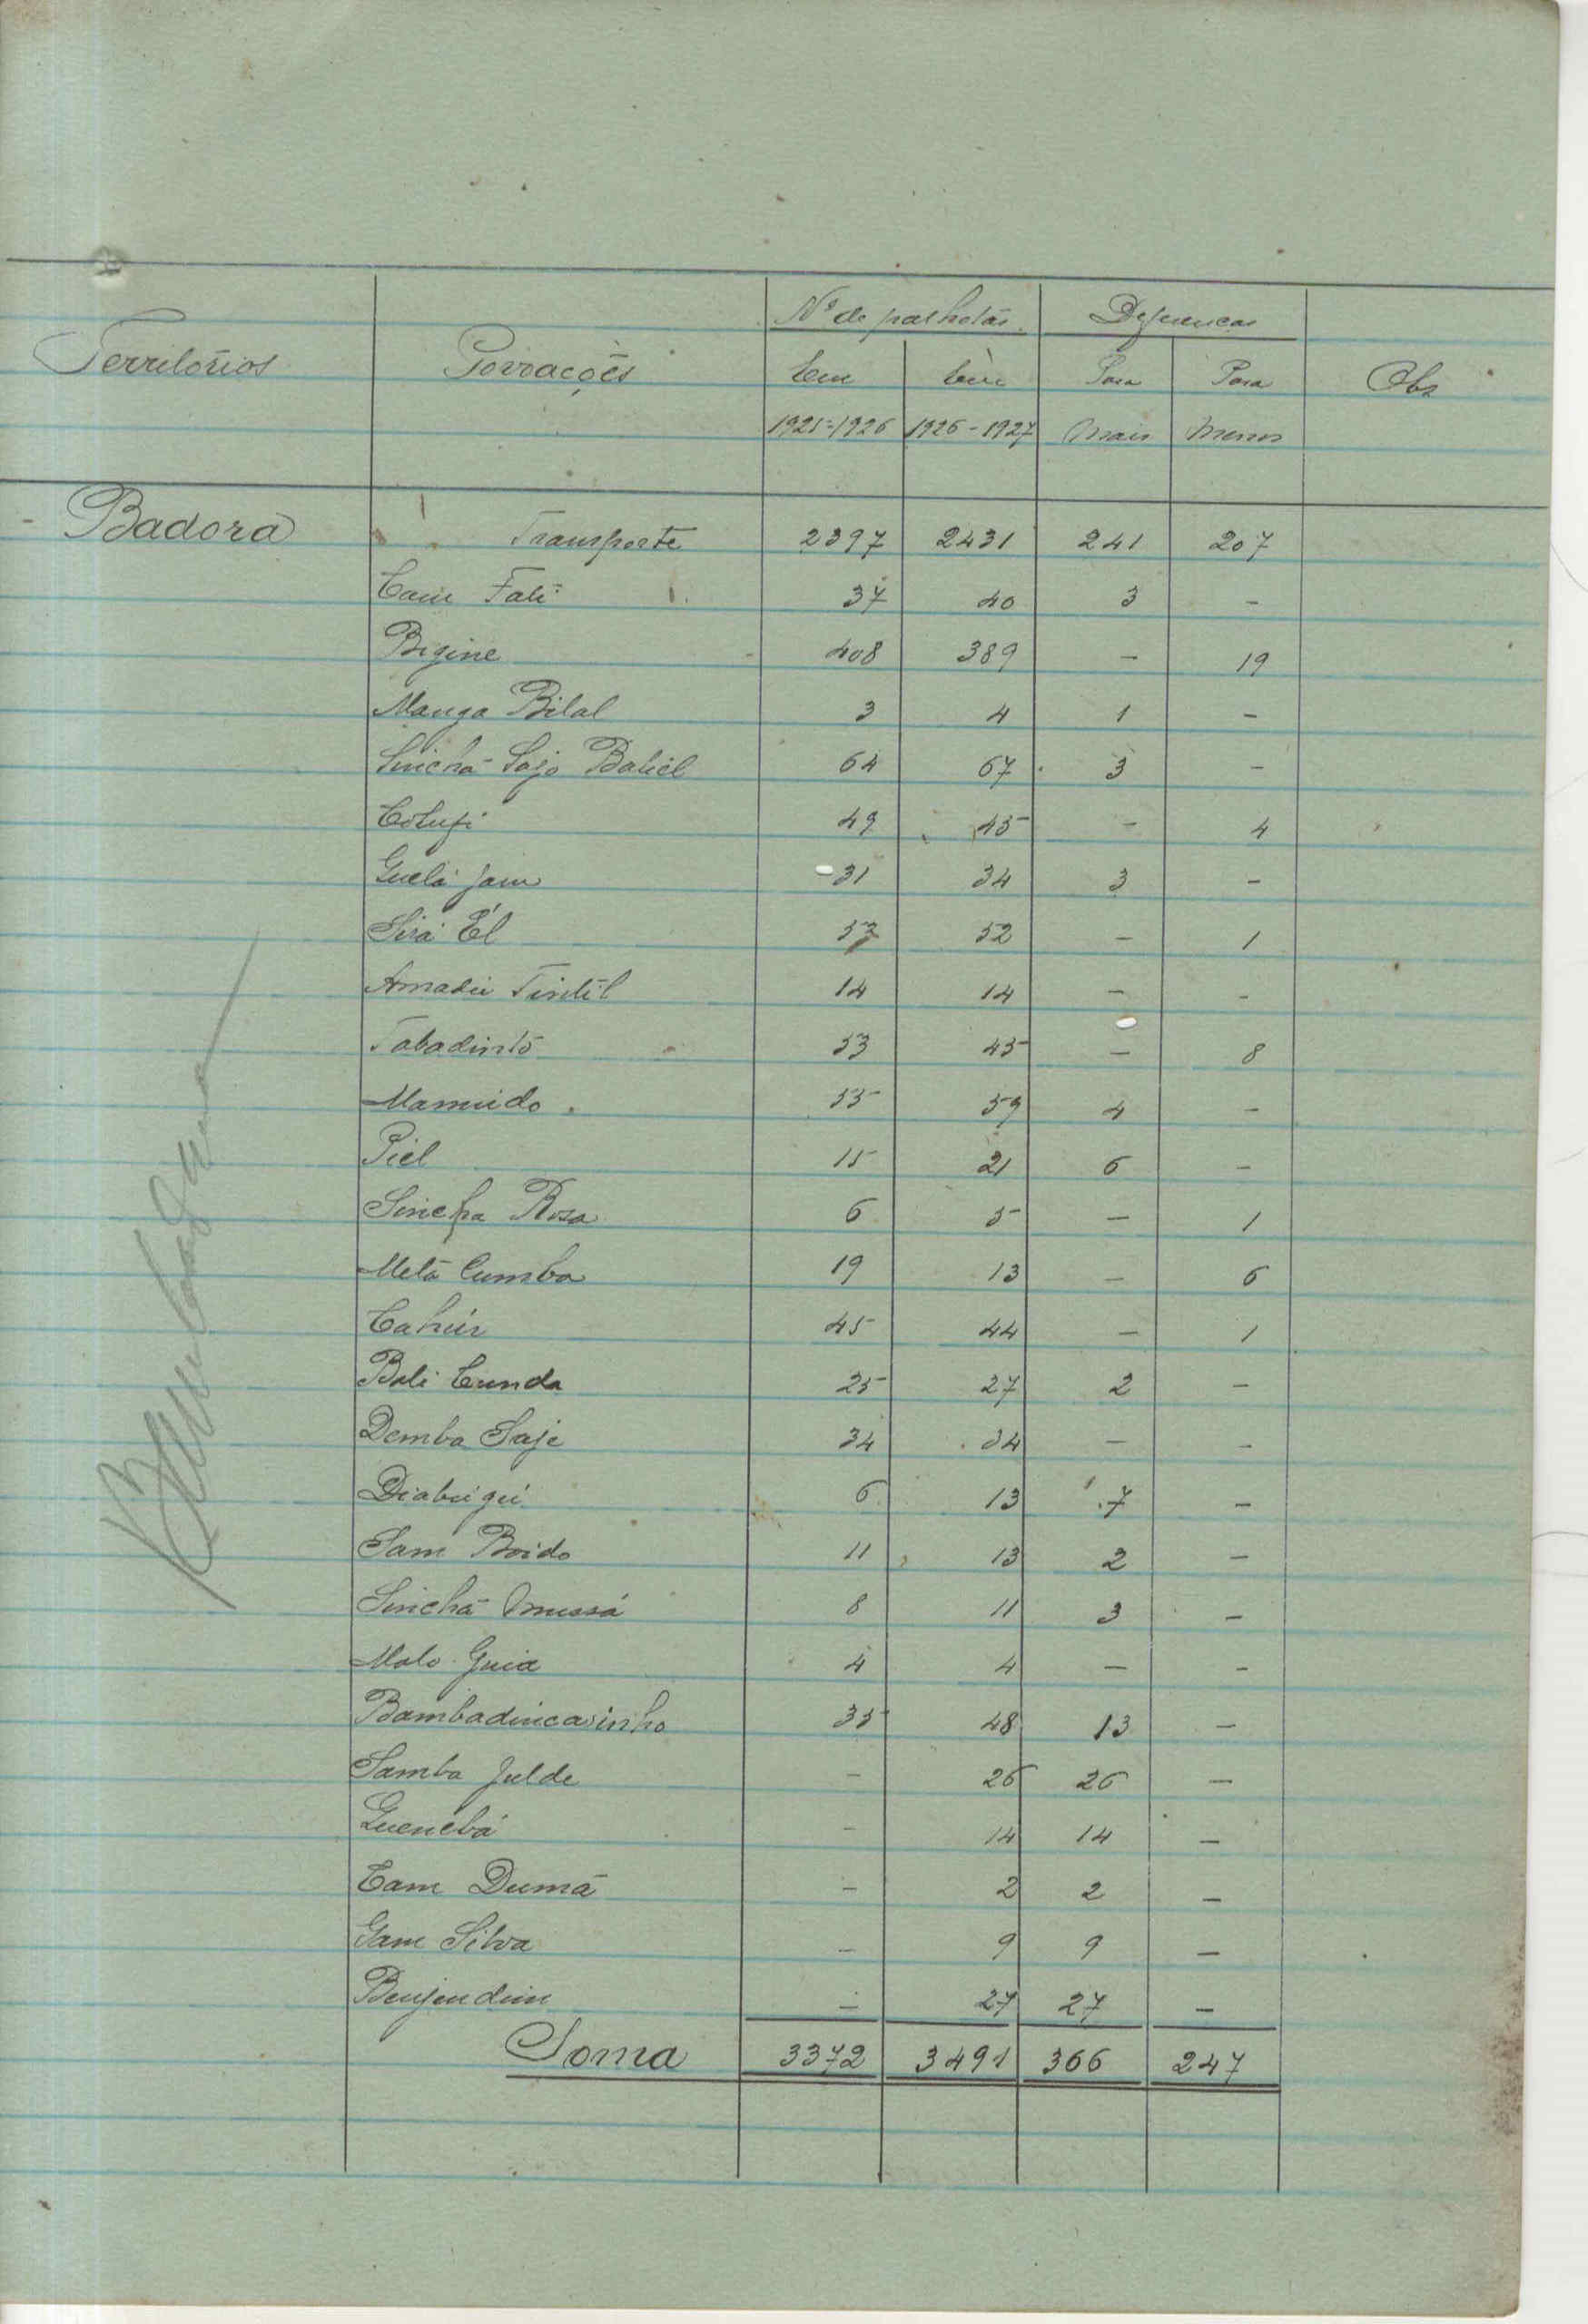 Nº de palhotas Diferenças
Territórios Povoações Em Em Para Para Obs
1925-1926 1926-1927 Mais Menos
Badora Transporte 2397 2431 241 207
Cam Fati 37 40 3 -
Bigine 408 389 - 19
Manga Bilal 3 4 1 -
Sinchã Sajo Baliel 64 67 3 -
Colufi 49 45 - 4
Guelá Jam 31 34 3 -
Sirá Él 53 52 - 1
Amadú Tintil 14 14 - -
Tabadintó 53 45 - 8
Mamudo 55 59 4 -
Piel 15 21 6 -
Sincha Rosa 6 5 - 1
Metã Cumba 19 13 - 6
Cahúr 45 44 - 1
Bali Cunda 25 27 2 -
Demba Saje 34 34 - -
Diabuigú 6 13 7 -
Sam Boido 11 13 2 -
Sinchã Mussá 8 11 3 -
Malo Guia 4 4 - -
Bambadincasinho 35 48 13 -
Samba Julde - 26 26 -
Guenebá - 14 14 -
Cam Dumã - 2 2 -
Gam Silva - 9 9 -
Benjendim - 27 27 -
Soma 3372 3491 366 247